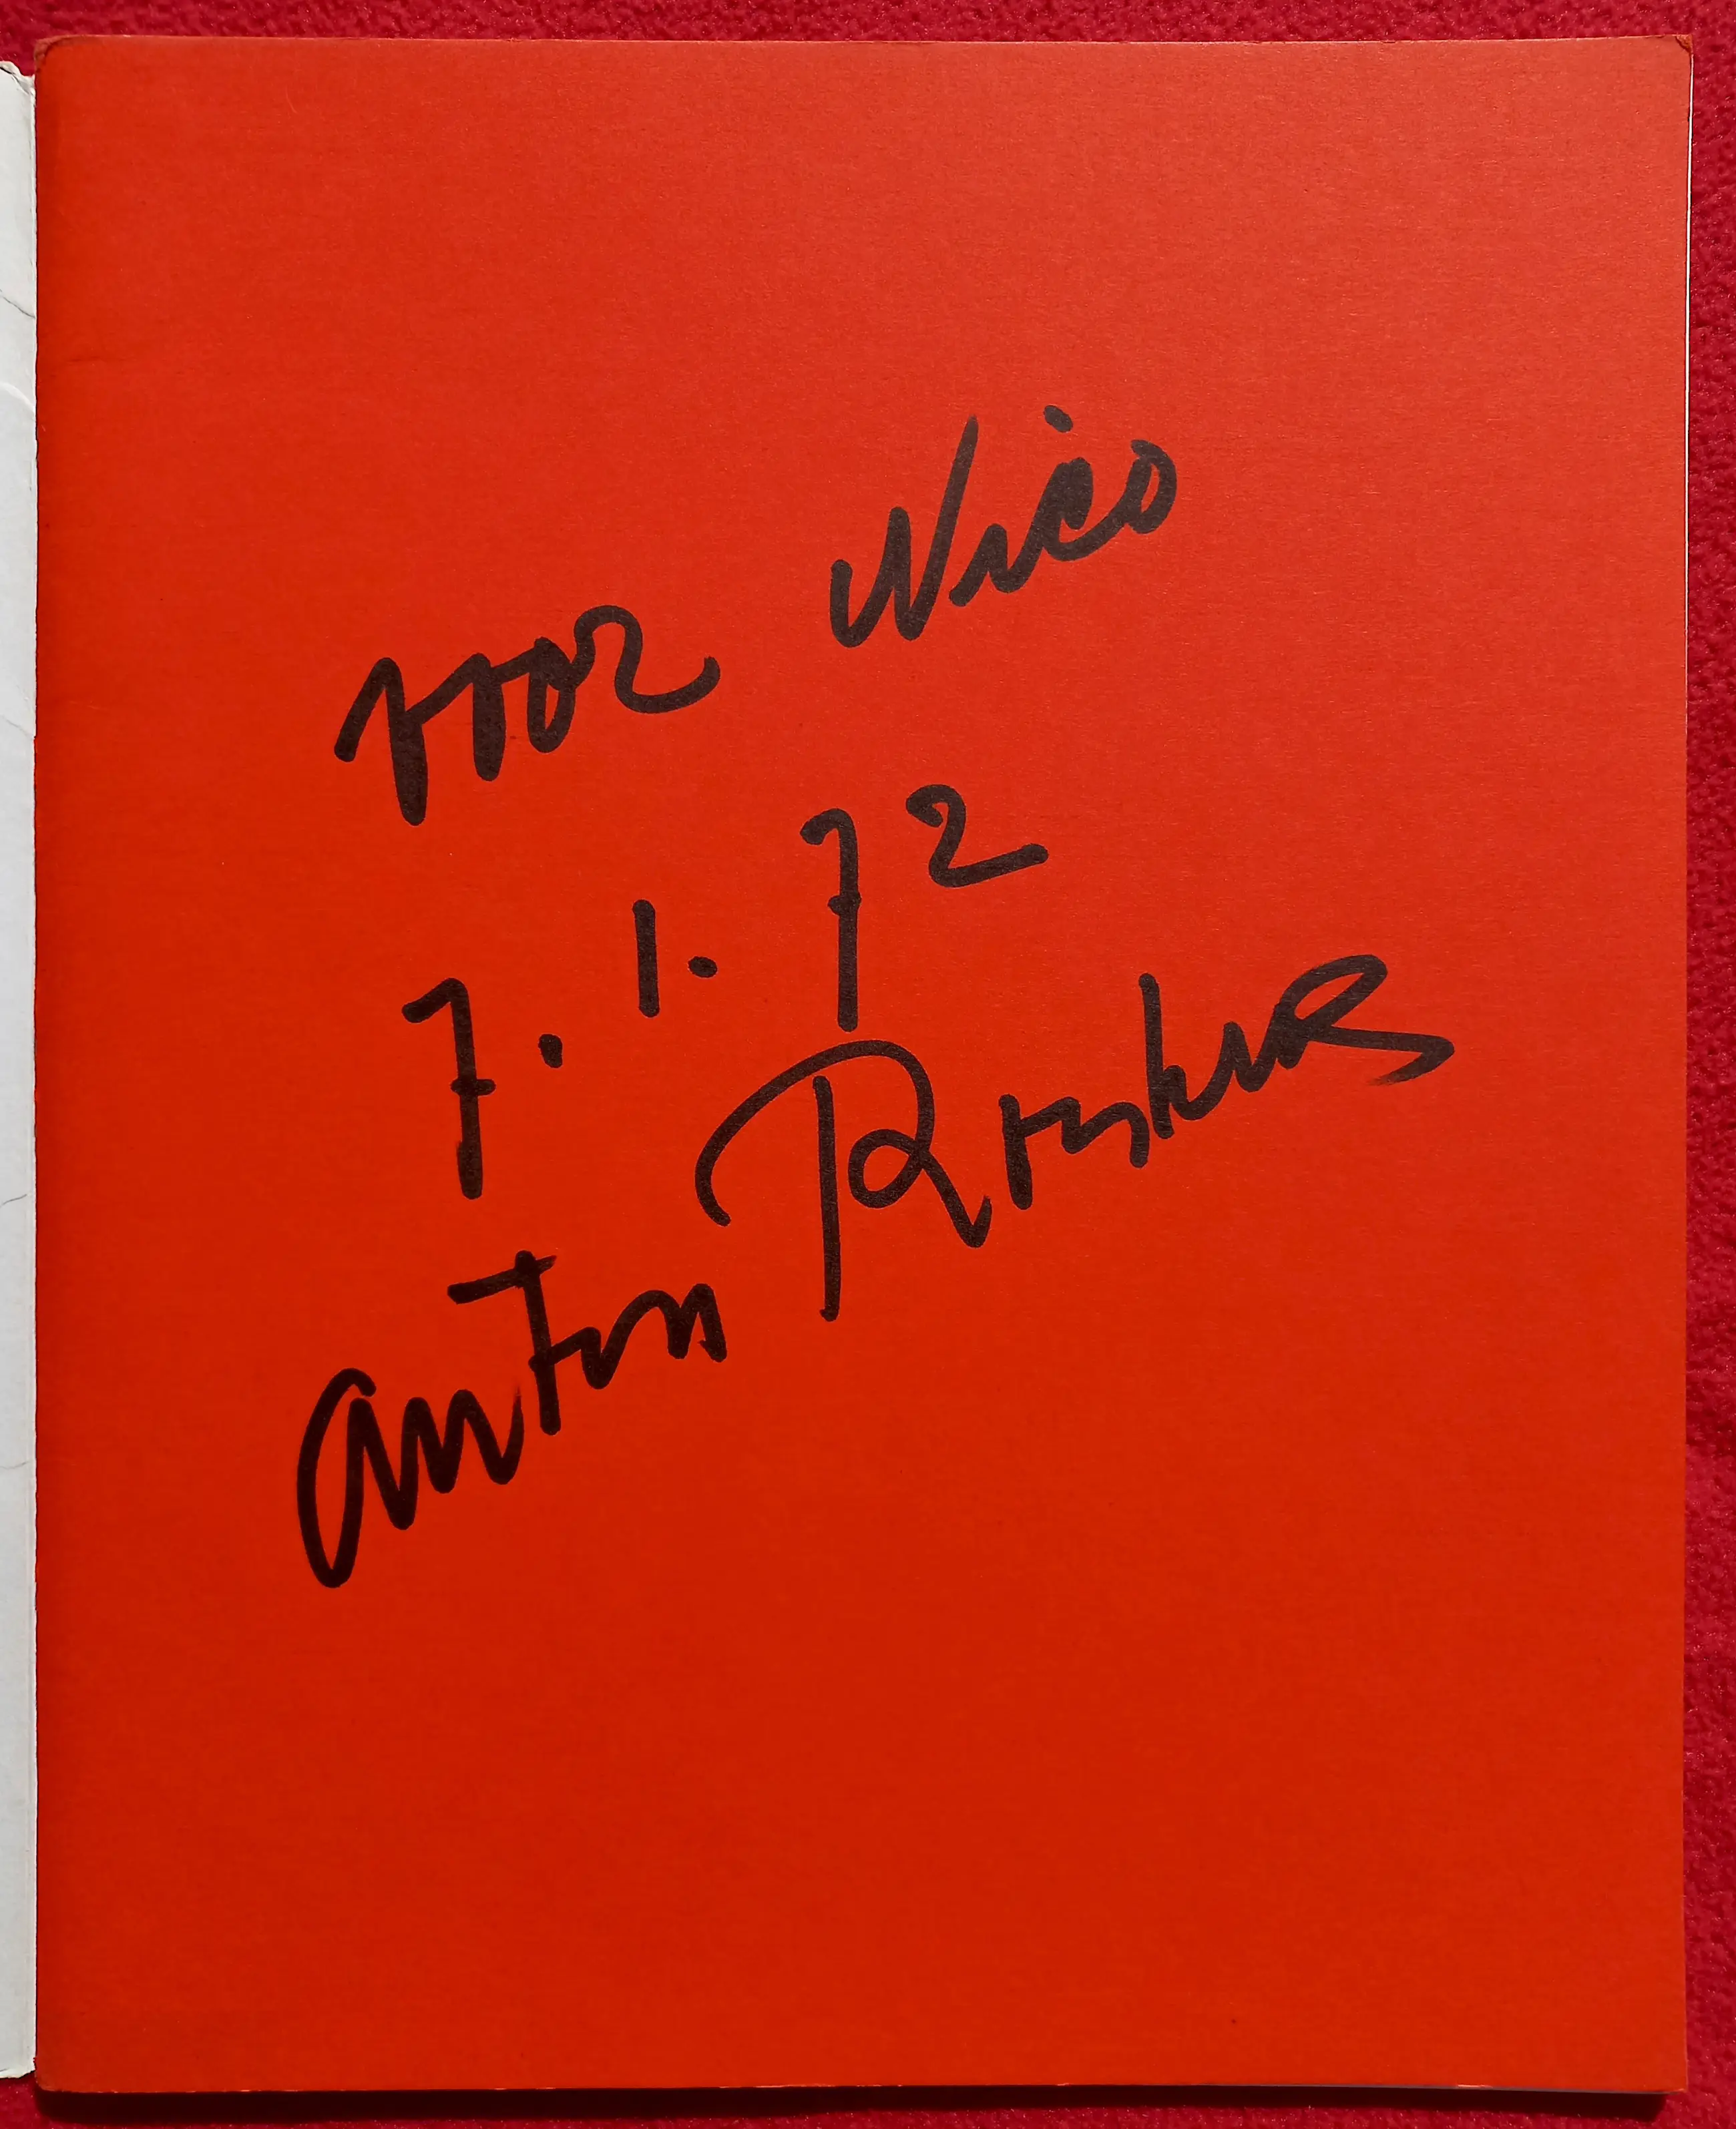 voor Nico
7.1.72
Anton Rooskens